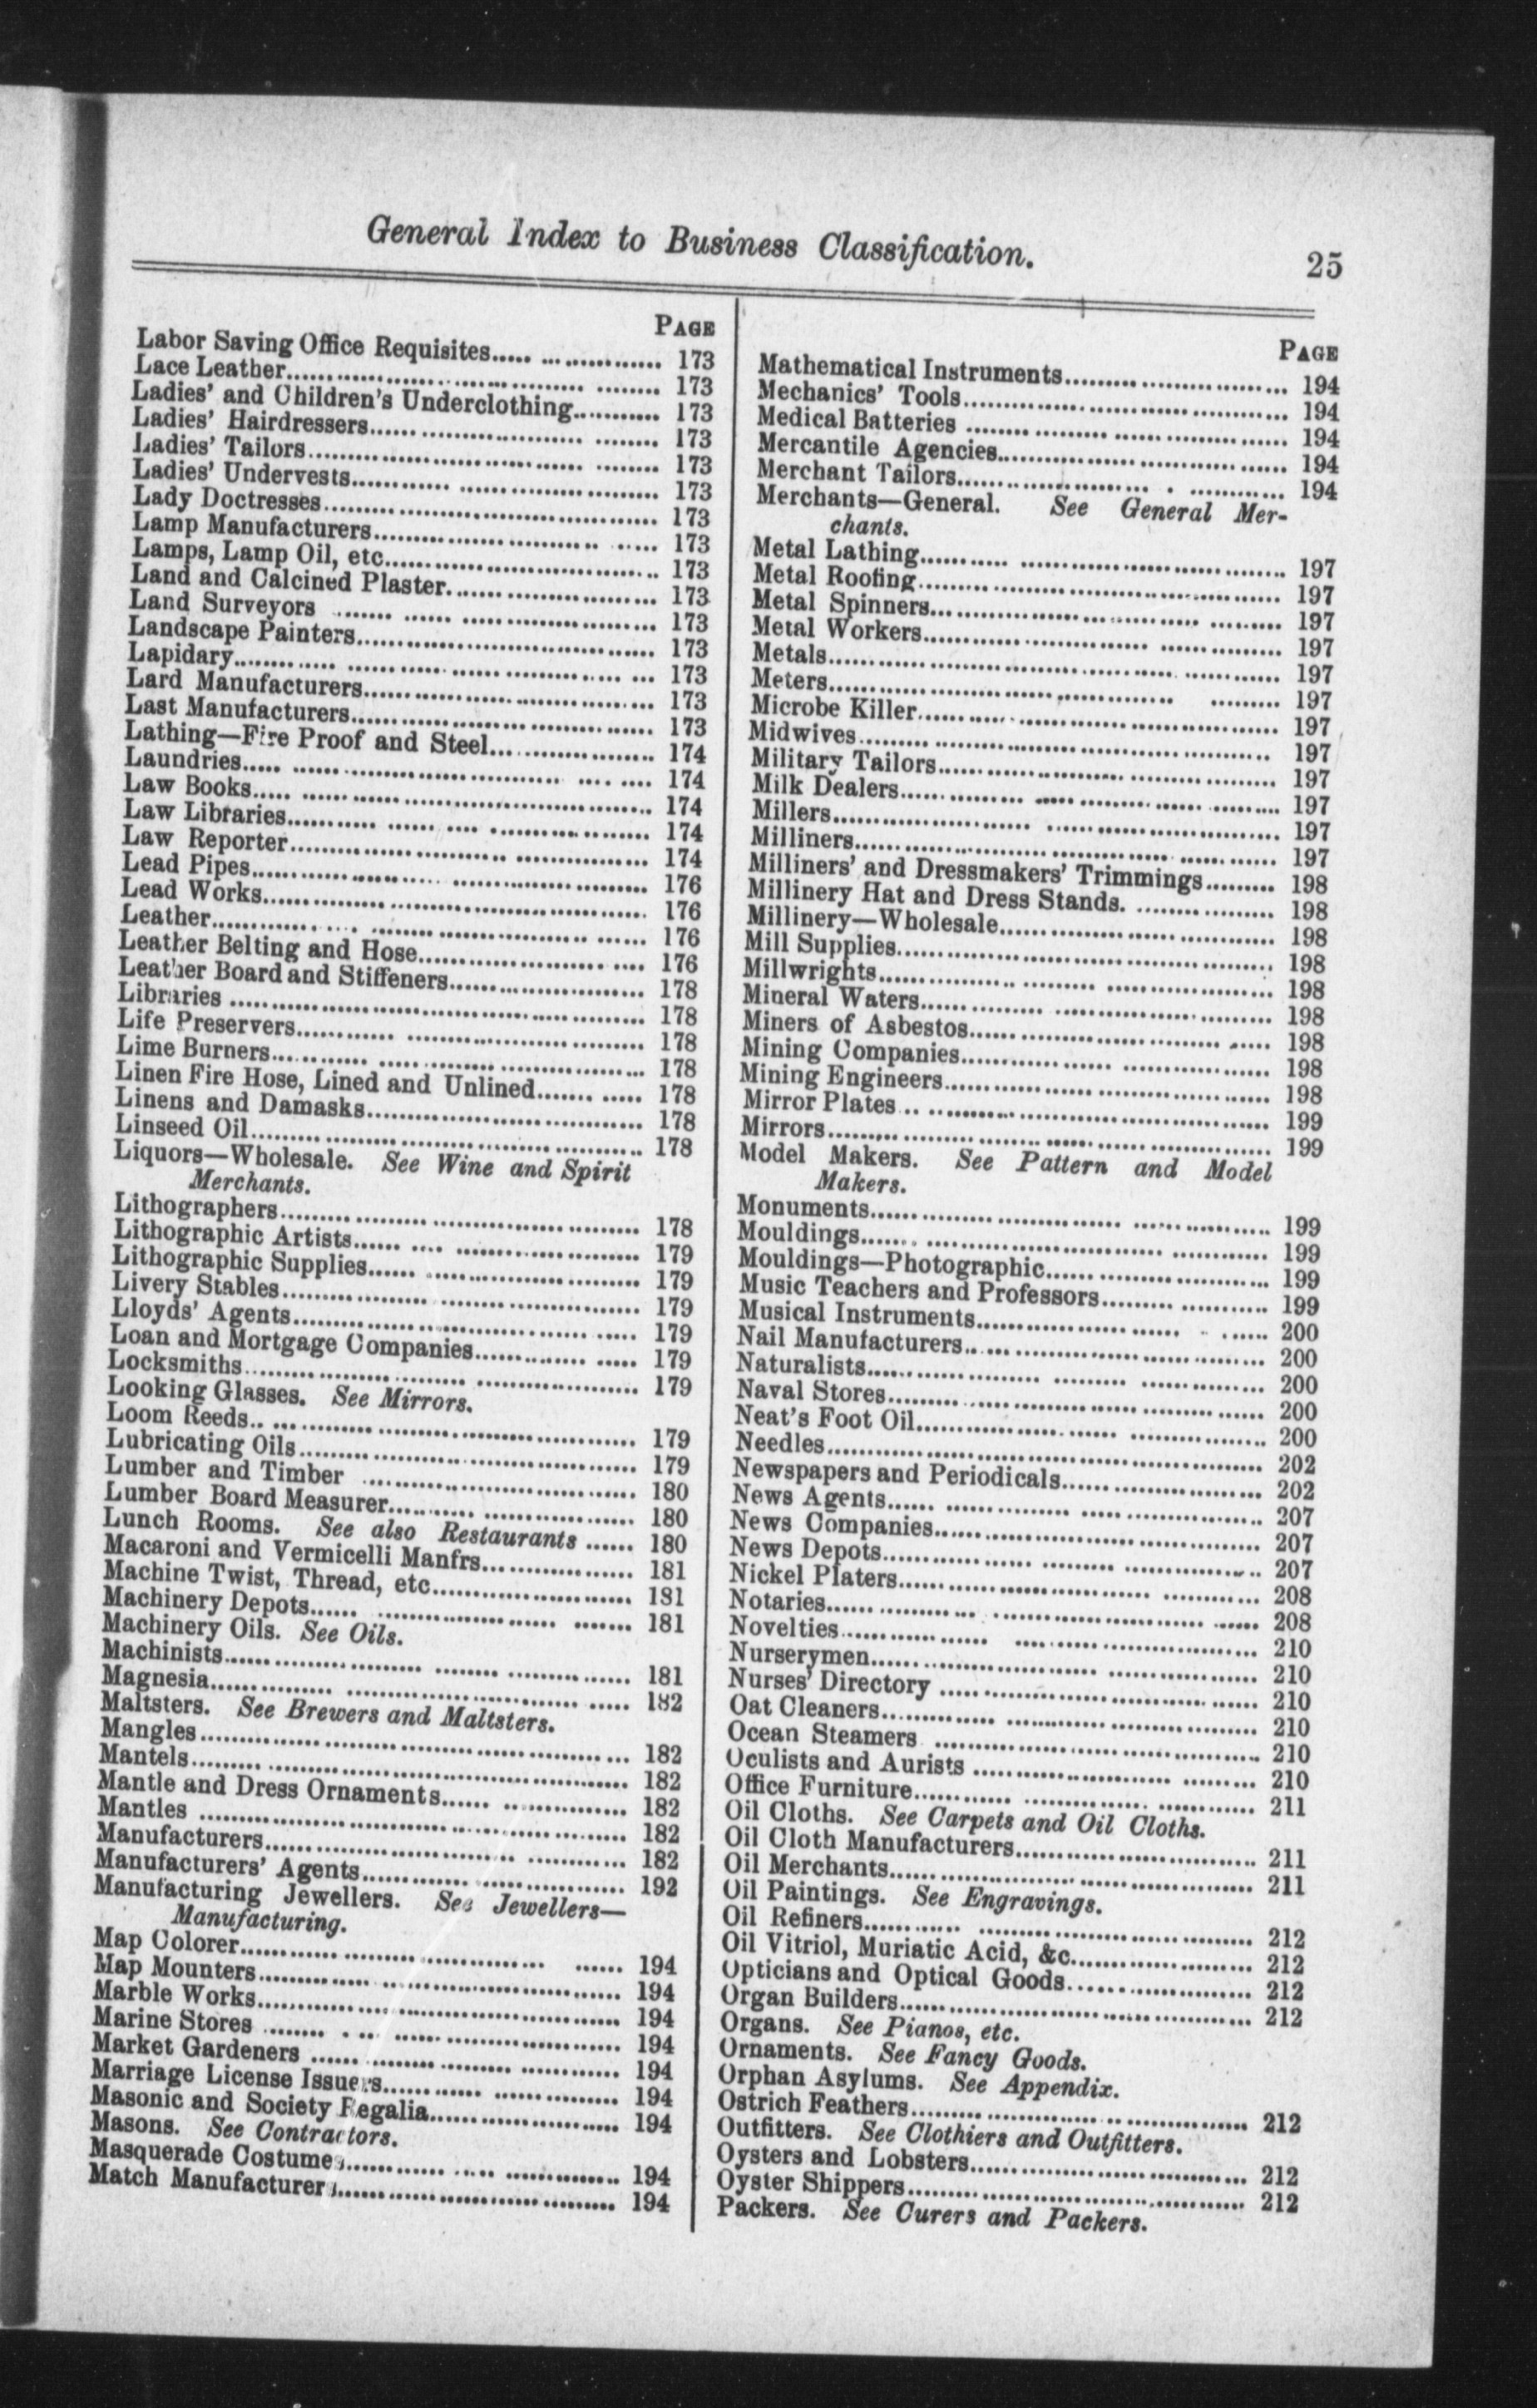 General Index to Business Classification.
25
PAGE
Labor Saving Office Requisites..... 173
Lace Leather..... 173
Ladies' and Children's Underclothing..... 173
Ladies' Hairdressers..... 173
Ladies' Tailors..... 173
Ladies' Undervests..... 173
Lady Doctresses..... 173
Lamp Manufacturers..... 173
Lamps, Lamp Oil, etc..... 173
Land and Calcined Plaster..... 173
Land Surveyors ..... 173
Landscape Painters..... 173
Lapidary..... 173
Lard Manufacturers..... 173
Last Manufacturers..... 173
Lathing—Fire Proof and Steel..... 174
Laundries..... 174
Law Books..... 174
Law Libraries..... 174
Law Reporter..... 174
Lead Pipes..... 176
Lead Works..... 176
Leather..... 176
Leather Belting and Hose..... 176
Leather Board and Stiffeners..... 178
Libraries ..... 178
Life Preservers..... 178
Lime Burners..... 178
Linen Fire Hose, Lined and Unlined..... 178
Linens and Damasks..... 178
Linseed Oil..... 178
Liquors—Wholesale. See Wine and Spirit
Merchants.
Lithographers..... 178
Lithographic Artists..... 179
Lithographic Supplies..... 179
Livery Stables..... 179
Lloyds' Agents..... 179
Loan and Mortgage Companies..... 179
Locksmiths..... 179
Looking Glasses. See Mirrors.
Loom Reeds..... 179
Lubricating Oils..... 179
Lumber and Timber ..... 180
Lumber Board Measurer..... 180
Lunch Rooms. See also Restaurants ..... 180
Macaroni and Vermicelli Manfrs..... 181
Machine Twist, Thread, etc..... 181
Machinery Depots..... 181
Machinery Oils. See Oils.
Machinists..... 181
Magnesia..... 182
Maltsters. See Brewers and Maltsters.
Mangles..... 182
Mantels..... 182
Mantle and Dress Ornaments..... 182
Mantles ..... 182
Manufacturers..... 182
Manufacturers' Agents..... 192
Manufacturing Jewellers. See Jewellers—
Manufacturing.
Map Colorer..... 194
Map Mounters..... 194
Marble Works..... 194
Marine Stores ..... 194
Market Gardeners ..... 194
Marriage License Issuers..... 194
Masonic and Society Regalia..... 194
Masons. See Contractors.
Masquerade Costumes..... 194
Match Manufacturers..... 194
PAGE
Mathematical Instruments..... 194
Mechanics' Tools..... 194
Medical Batteries ..... 194
Mercantile Agencies..... 194
Merchant Tailors..... 194
Merchants—General. See General Mer-
chants.
Metal Lathing..... 197
Metal Roofing..... 197
Metal Spinners..... 197
Metal Workers..... 197
Metals..... 197
Meters..... 197
Microbe Killer..... 197
Midwives..... 197
Military Tailors..... 197
Milk Dealers..... 197
Millers..... 197
Milliners..... 197
Milliners' and Dressmakers' Trimmings..... 198
Millinery Hat and Dress Stands. ..... 198
Millinery—Wholesale..... 198
Mill Supplies..... 198
Millwrights..... 198
Mineral Waters..... 198
Miners of Asbestos..... 198
Mining Companies..... 198
Mining Engineers..... 198
Mirror Plates..... 199
Mirrors..... 199
Model Makers. See Pattern and Model
Makers.
Monuments..... 199
Mouldings..... 199
Mouldings—Photographic..... 199
Music Teachers and Professors..... 199
Musical Instruments..... 200
Nail Manufacturers..... 200
Naturalists..... 200
Naval Stores..... 200
Neat's Foot Oil..... 200
Needles..... 202
Newspapers and Periodicals..... 202
News Agents..... 207
News Companies..... 207
News Depots..... 207
Nickel Platers..... 208
Notaries..... 208
Novelties..... 210
Nurserymen..... 210
Nurses' Directory ..... 210
Oat Cleaners..... 210
Ocean Steamers ..... 210
Oculists and Aurists ..... 210
Office Furniture..... 211
Oil Cloths. See Carpets and Oil Cloths.
Oil Cloth Manufacturers..... 211
Oil Merchants..... 211
Oil Paintings. See Engravings.
Oil Refiners..... 212
Oil Vitriol, Muriatic Acid, &c..... 212
Opticians and Optical Goods..... 212
Organ Builders..... 212
Organs. See Pianos, etc.
Ornaments. See Fancy Goods.
Orphan Asylums. See Appendix.
Ostrich Feathers..... 212
Outfitters. See Clothiers and Outfitters.
Oysters and Lobsters..... 212
Oyster Shippers..... 212
Packers. See Curers and Packers.